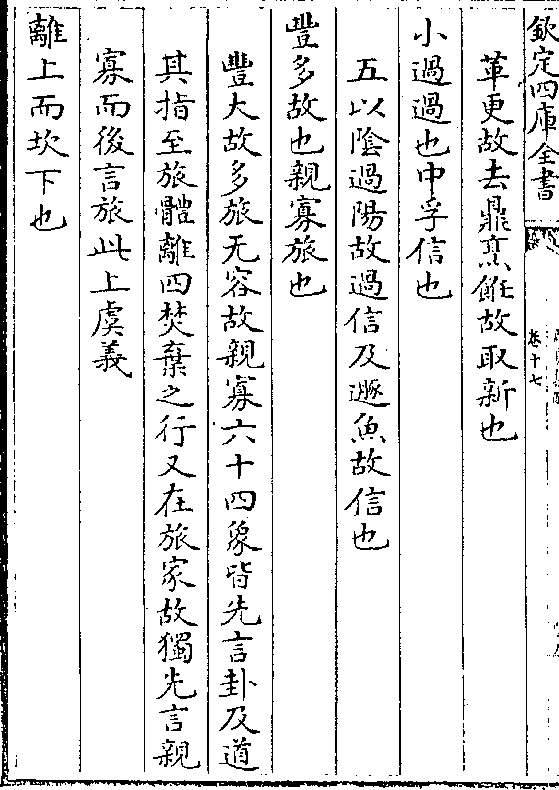 欽定四庫全書
卷十七
革更故去鼎烹飪故取新也
小過過也中孚信也
五以陰過陽故過信及遯魚故信也
豐多故也親寡旅也
豐大故多旅无容故親寡六十四象皆先言卦及道
其指至旅體離四焚棄之行又在旅家故獨先言親
寡而後言旅此上虞義
離上而坎下也